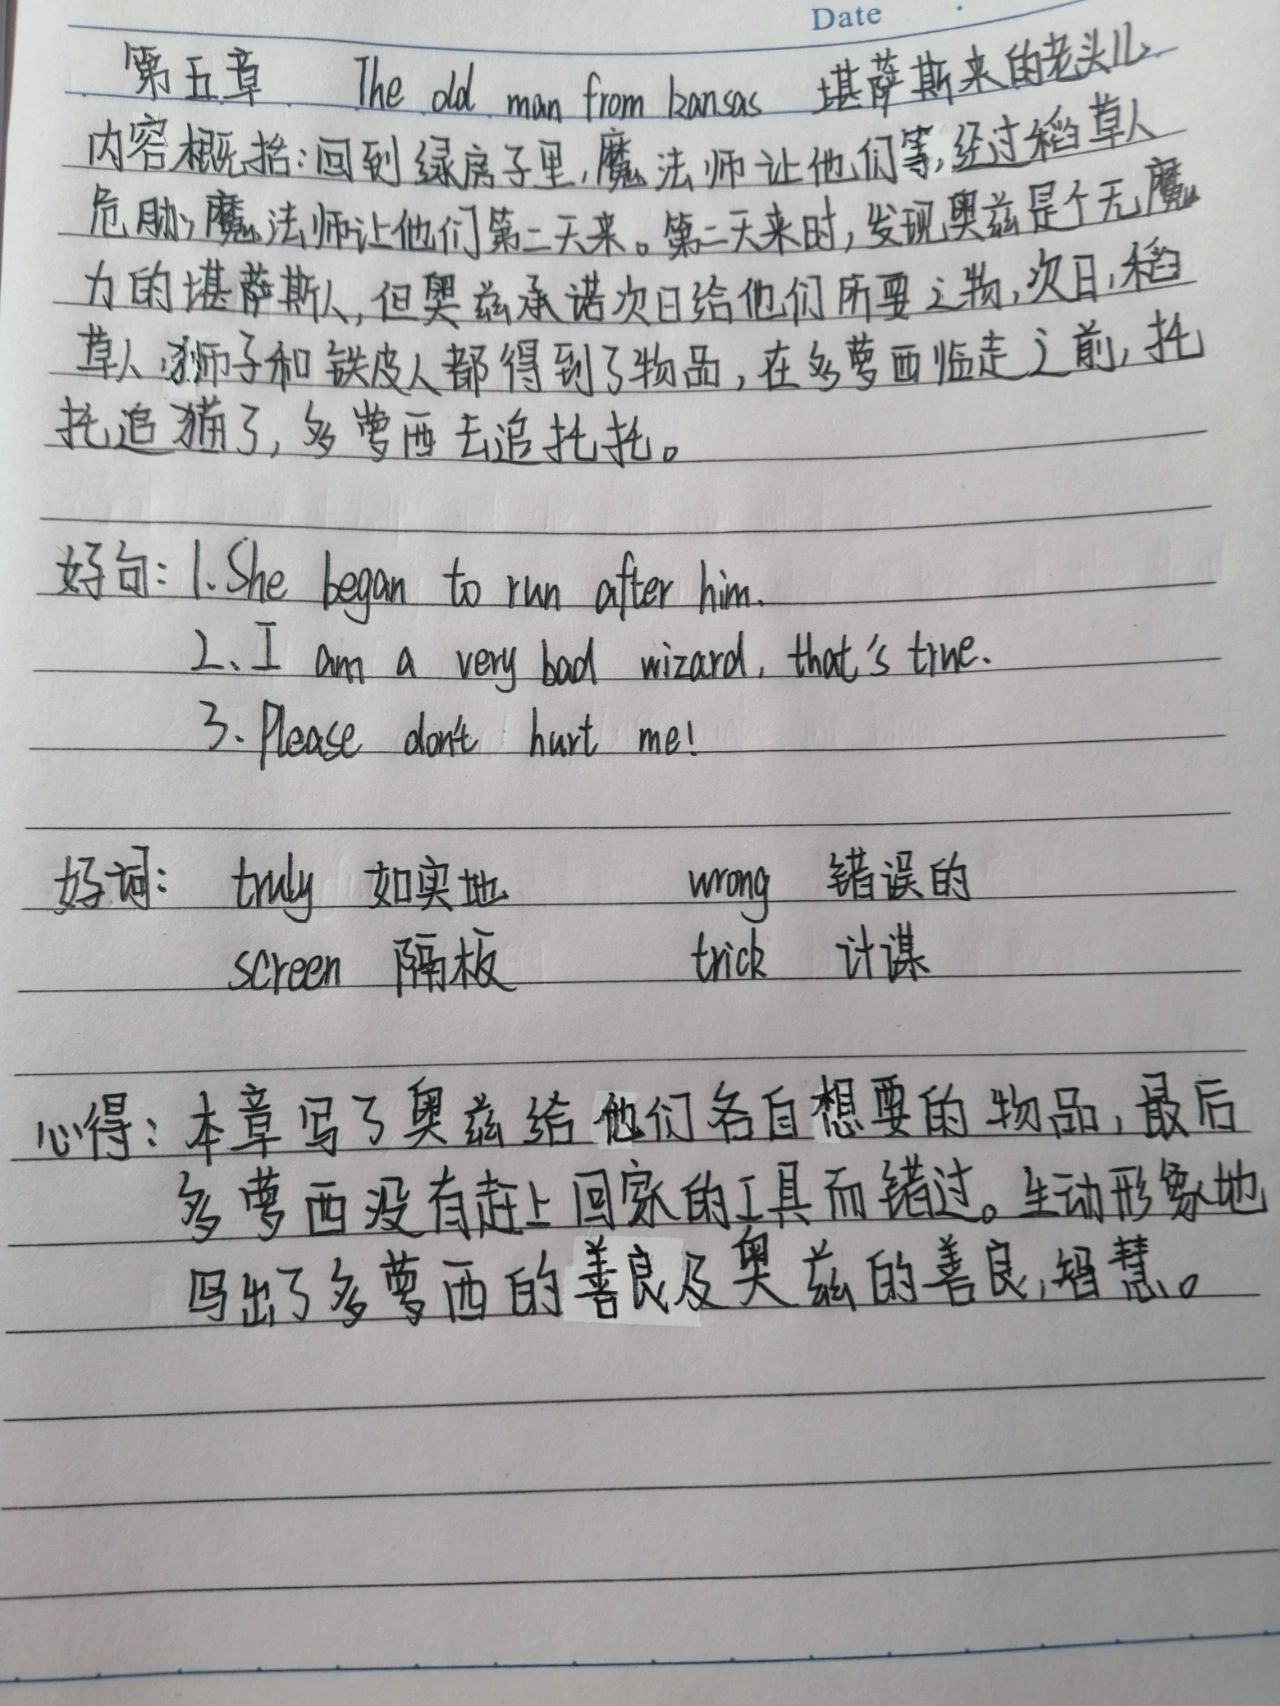 Date
第五章 The old man from kansas 堪萨斯来的老头儿
内容概括:回到绿房子里,魔法师让他们等,经过稻草人
危胁,魔法师让他们第二天来。第二天来时,发现奥兹是个无魔
力的堪萨斯人,但奥兹承诺次日给他们所要之物,次日,稻
草人,狮子和铁皮人都得到了物品,在多萝西临走之前,托
托追猫了,多萝西去追托托。
好句:1.She began to run after him.
2.I am a very bad wizard, that's true.
3.Please don't hurt me!
好词: truly 如实地 wrong 错误的
screen 隔板 trick 计谋
心得:本章写了奥兹给他们各自想要的物品,最后
多萝西没有赶上回家的工具而错过。生动形象地
写出了多萝西的善良及奥兹的善良,智慧。